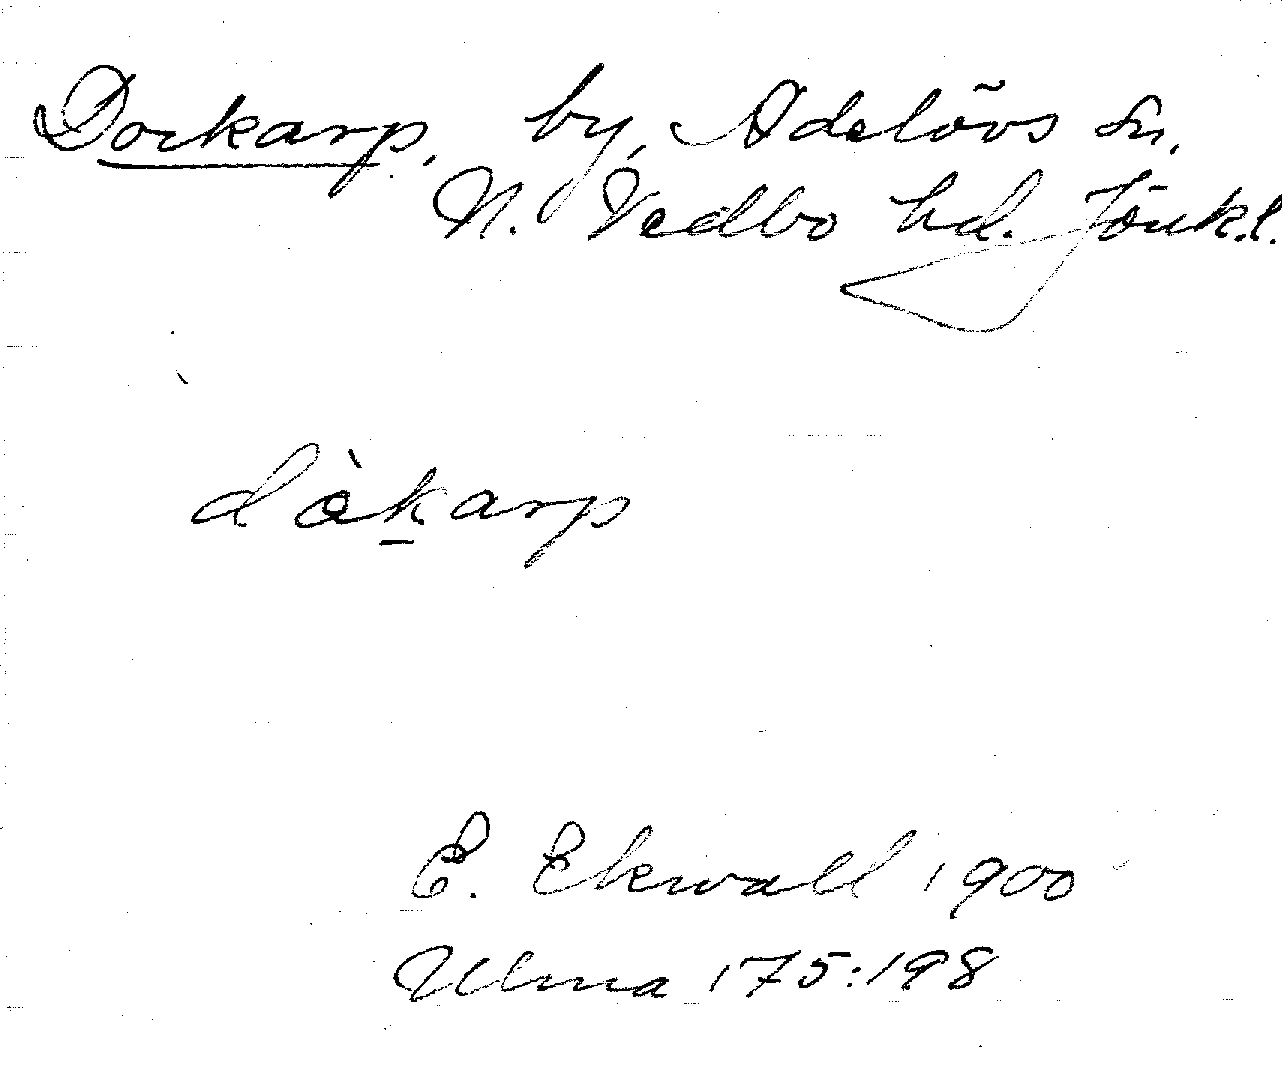 Dockarp, by, Adelövs sn,
N. Vedbo hd. Jönk.l.
dàkarp
E. Ekwall 1900
Ulma 175:198